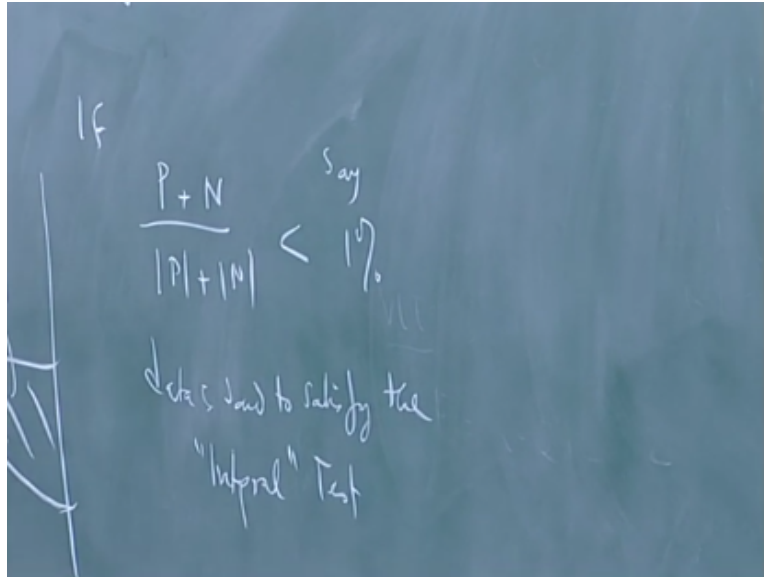 If
P + N
|P| + |N|
<
Say
1%
data is said to satisfy the
"Integral" Test